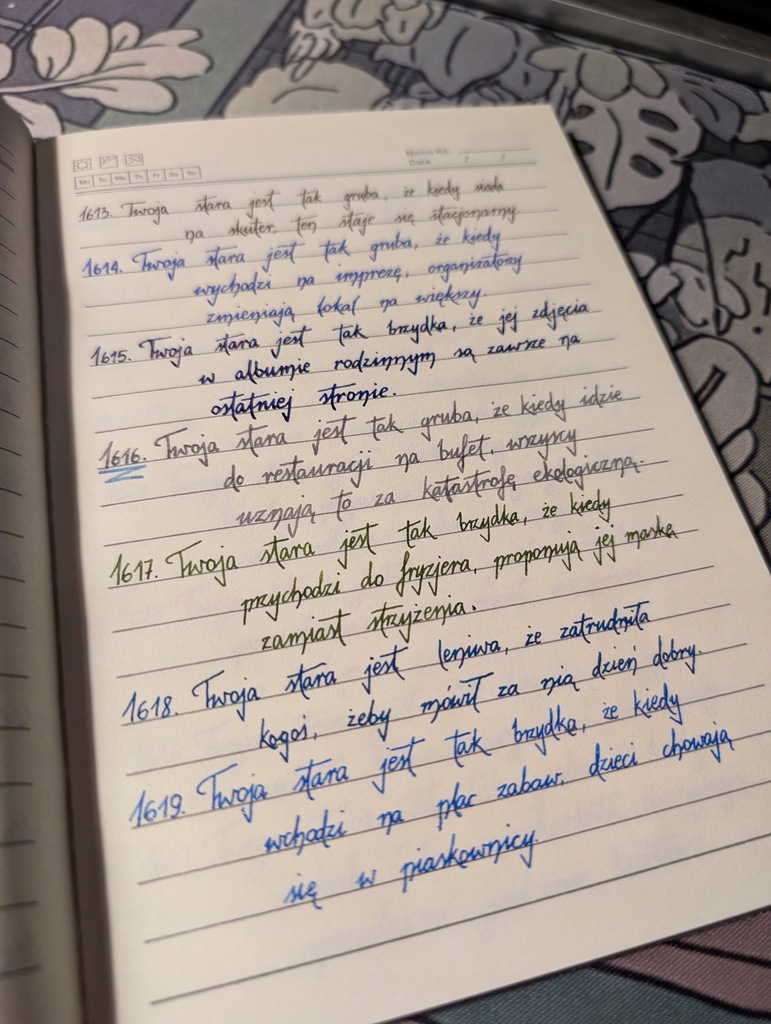 Mo Tu We Th Fr Sa Su
Memo No.
Date / /
1613. Twoja stara jest tak gruba, że kiedy siada
na skuter, ten staje się stacjonarny
1614. Twoja stara jest tak gruba, że kiedy
wychodzi na imprezę, organizatorzy
zmieniają lokal na większy.
1615. Twoja stara jest tak brzydka, że jej zdjęcia
w albumie rodzinnym są zawsze na
ostatniej stronie.
1616. Twoja stara jest tak gruba, że kiedy idzie
do restauracji na bufet, wszyscy
uznają to za katastrofę ekologiczną.
1617. Twoja stara jest tak brzydka, że kiedy
przychodzi do fryzjera, proponują jej maskę
zamiast strzyżenia.
1618. Twoja stara jest leniwa, że zatrudniła
kogoś, żeby mówił za nią dzień dobry.
1619. Twoja stara jest tak brzydka, że kiedy
wchodzi na plac zabaw, dzieci chowają
się w piaskownicy.